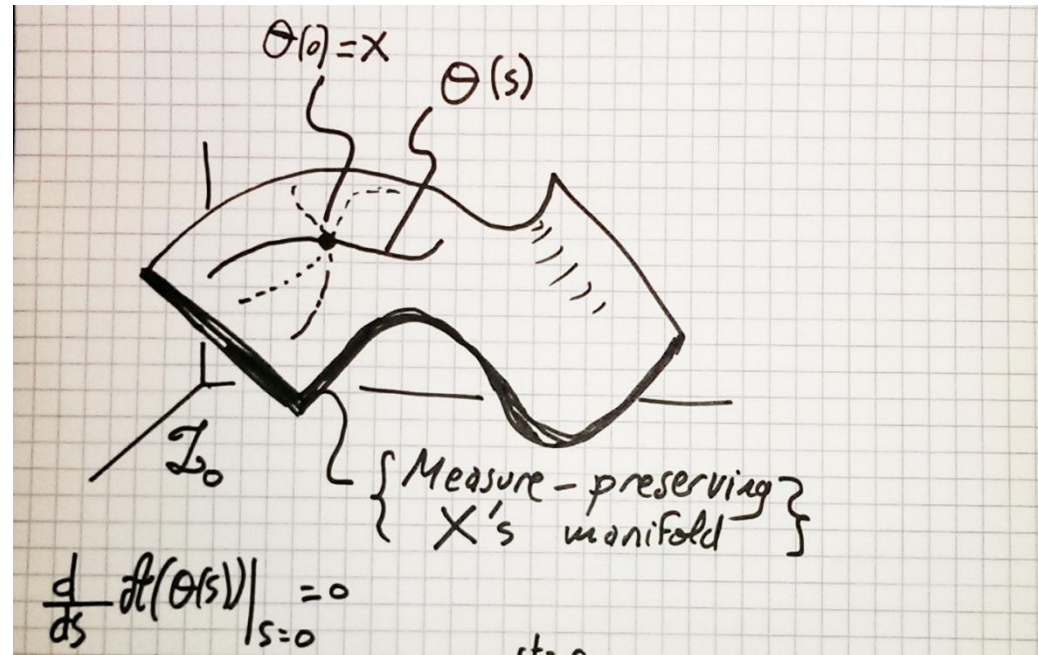 θ(0)=X
θ(s)
{Measure-preserving}
X's manifold
d/ds A(θ(s))|s=0 =0